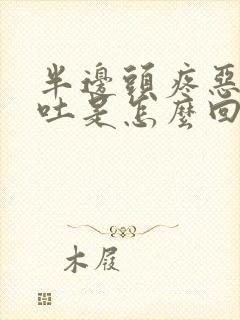 半邊頭疼惡
吐是怎麼回
木屐